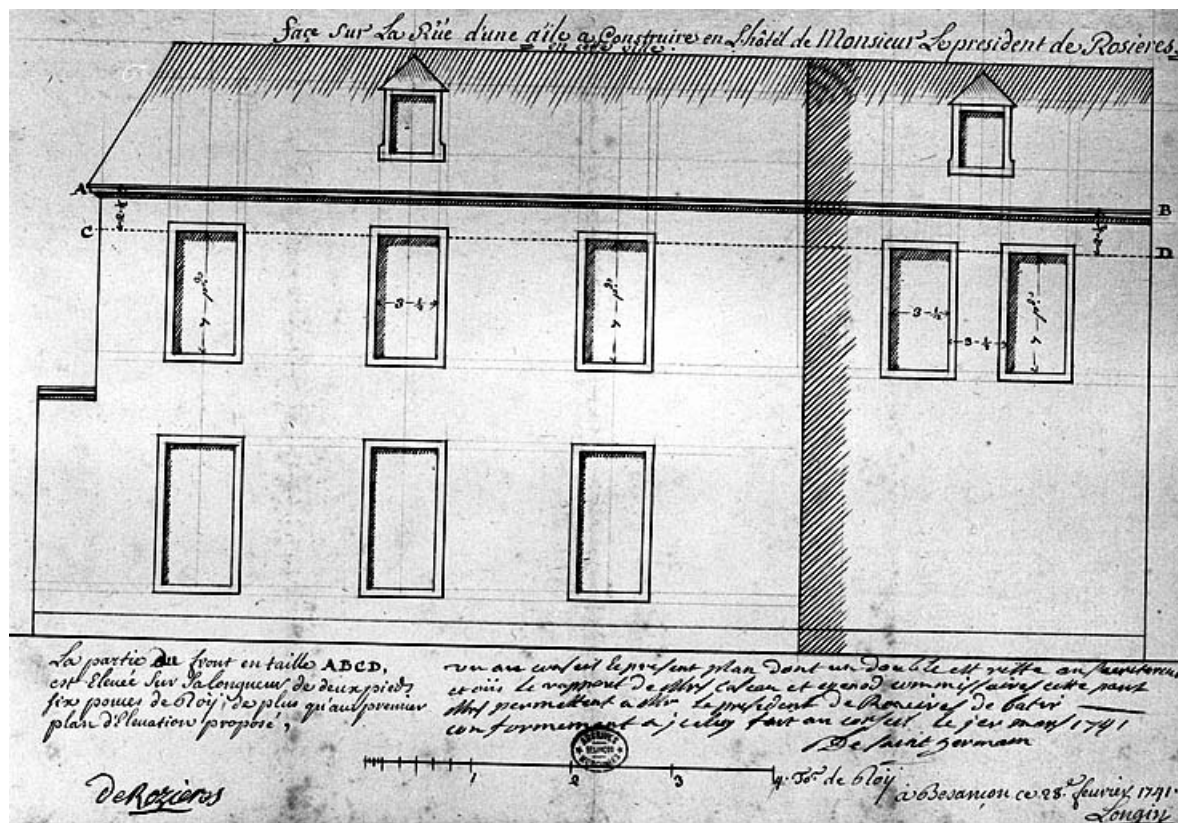 façe sur La Rüe d'une aîle a Construire en L'hôtel de Monsieur Le president de Rosieres.
en cette ville.
A
B
2-½
2-½
C
D
7-pds
3-½
7-pds
3-½
3-½
7-pds
La partie du front en taille ABCD,
est Elevée sur sa longueur de deux pieds
six pouces de Roy, de plus qu'au premier
plan d'Elevation proposé,
vu au conseil le present plan dont un double est resté au secretariat
et oüis le rapport de Mrs Caseau et commissaires cette part
Mrs permettent a Mr le president de Rosieres de batir
conformement a jceluy fait au conseil le jer mars 1741
De Saint germain
ARCHIVES
BESANÇON
1
2
3
4. Tos. de Roy
deRozieros
à Besancon ce 28e. fevrier 1741.
Longin